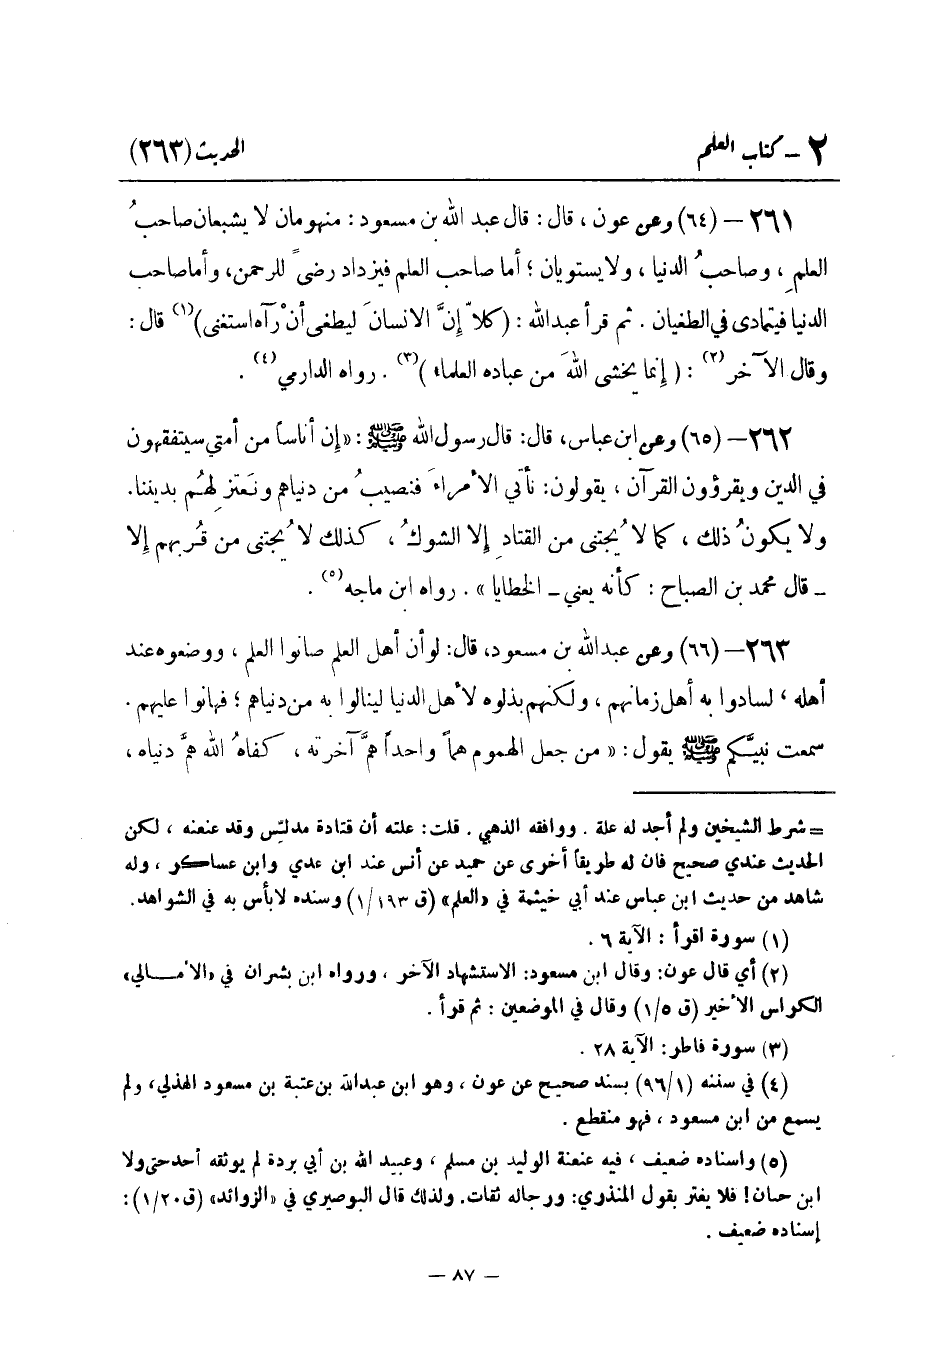 ٢ – كتاب العلم
الحديث (٢٦٣)
٢٦١ – (٦٤) وعن عون ، قال : قال عبد الله بن مسعود : منهومان لا يشبعان صاحبُ
العلمِ ، وصاحبُ الدنيا ، ولا يستويان ؛ أما صاحب العلم فيزداد رضىً للرحمن، وأما صاحب
الدنيا فيتمادى في الطغيان . ثم قرأ عبد الله : (كلاّ إنَّ الانسانَ ليطغى أنْ رآه استغنى)(١) قال :
وقال الآخر(٢) : ( إنما يخشى اللهَ من عباده العلماء )(٣) . رواه الدارمي(٤) .
٢٦٢ – (٦٥) وعن ابن عباس، قال: قال رسول الله ﷺ : «إن أناساً من أمتي سيتفقهون
في الدين ويقرؤون القرآن ، يقولون: نأتي الأمراءَ فنصيبُ من دنياهم ونعتزلهُم بديننا.
ولا يكونُ ذلك ، كما لا يُجتنى من القتادِ إلا الشوكُ ، كذلك لا يُجتنى من قُربهم إلا
– قال محمد بن الصباح : كأنه يعني – الخطايا » . رواه ابن ماجه(٥) .
٢٦٣ – (٦٦) وعن عبد الله بن مسعود، قال: لو أن أهل العلم صانوا العلم ، ووضعوه عند
أهله ، لسادوا به أهل زمانهم ، ولكنهم بذلوه لأهل الدنيا لينالوا به من دنياهم ؛ فهانوا عليهم .
سمعت نبيَّكم ﷺ يقول : « من جعل الهموم هماً واحداً همَّ آخرته ، كفاهُ الله همَّ دنياه ،
= شرط الشيخين ولم أجد له علة . ووافقه الذهبي . قلت: علته أن قتادة مدلّس وقد عنعنه ، لكن
الحديث عندي صحيح فان له طريقاً أخرى عن حميد عن أنس عند ابن عدي وابن عساكر ، وله
شاهد من حديث ابن عباس عند أبي خيثمة في «العلم» (ق ١/١٩٣) وسنده لابأس به في الشواهد.
(١) سورة اقرأ : الآية ٦ .
(٢) أي قال عون: وقال ابن مسعود: الاستشهاد الآخر ، ورواه ابن بشران في «الأمـــالي»
الكراس الأخير (ق ١/٥) وقال في الموضعين : ثم قرأ .
(٣) سورة فاطر: الآية ٢٨ .
(٤) في سننه (٩٦/١) بسند صحيح عن عون ، وهو ابن عبدالله بن عتبة بن مسعود الهذلي، ولم
يسمع من ابن مسعود ، فهو منقطع .
(٥) واسناده ضعيف ، فيه عنعنة الوليد بن مسلم ، وعبيد الله بن أبي بردة لم يوثقه أحد حتى ولا
ابن حبان! فلا يغتر بقول المنذري: ورجاله ثقات. ولذلك قال البوصيري في «الزوائد» (ق ١/٢٠) :
إسناده ضعيف .
– ٨٧ –